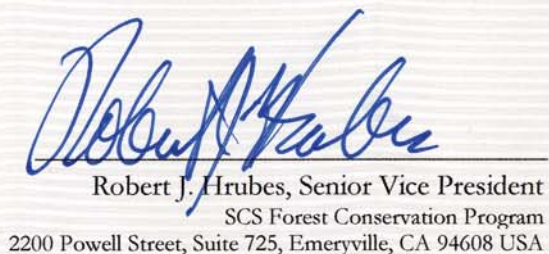 Robert J. Hrubes
Robert J. Hrubes, Senior Vice President
SCS Forest Conservation Program
2200 Powell Street, Suite 725, Emeryville, CA 94608 USA